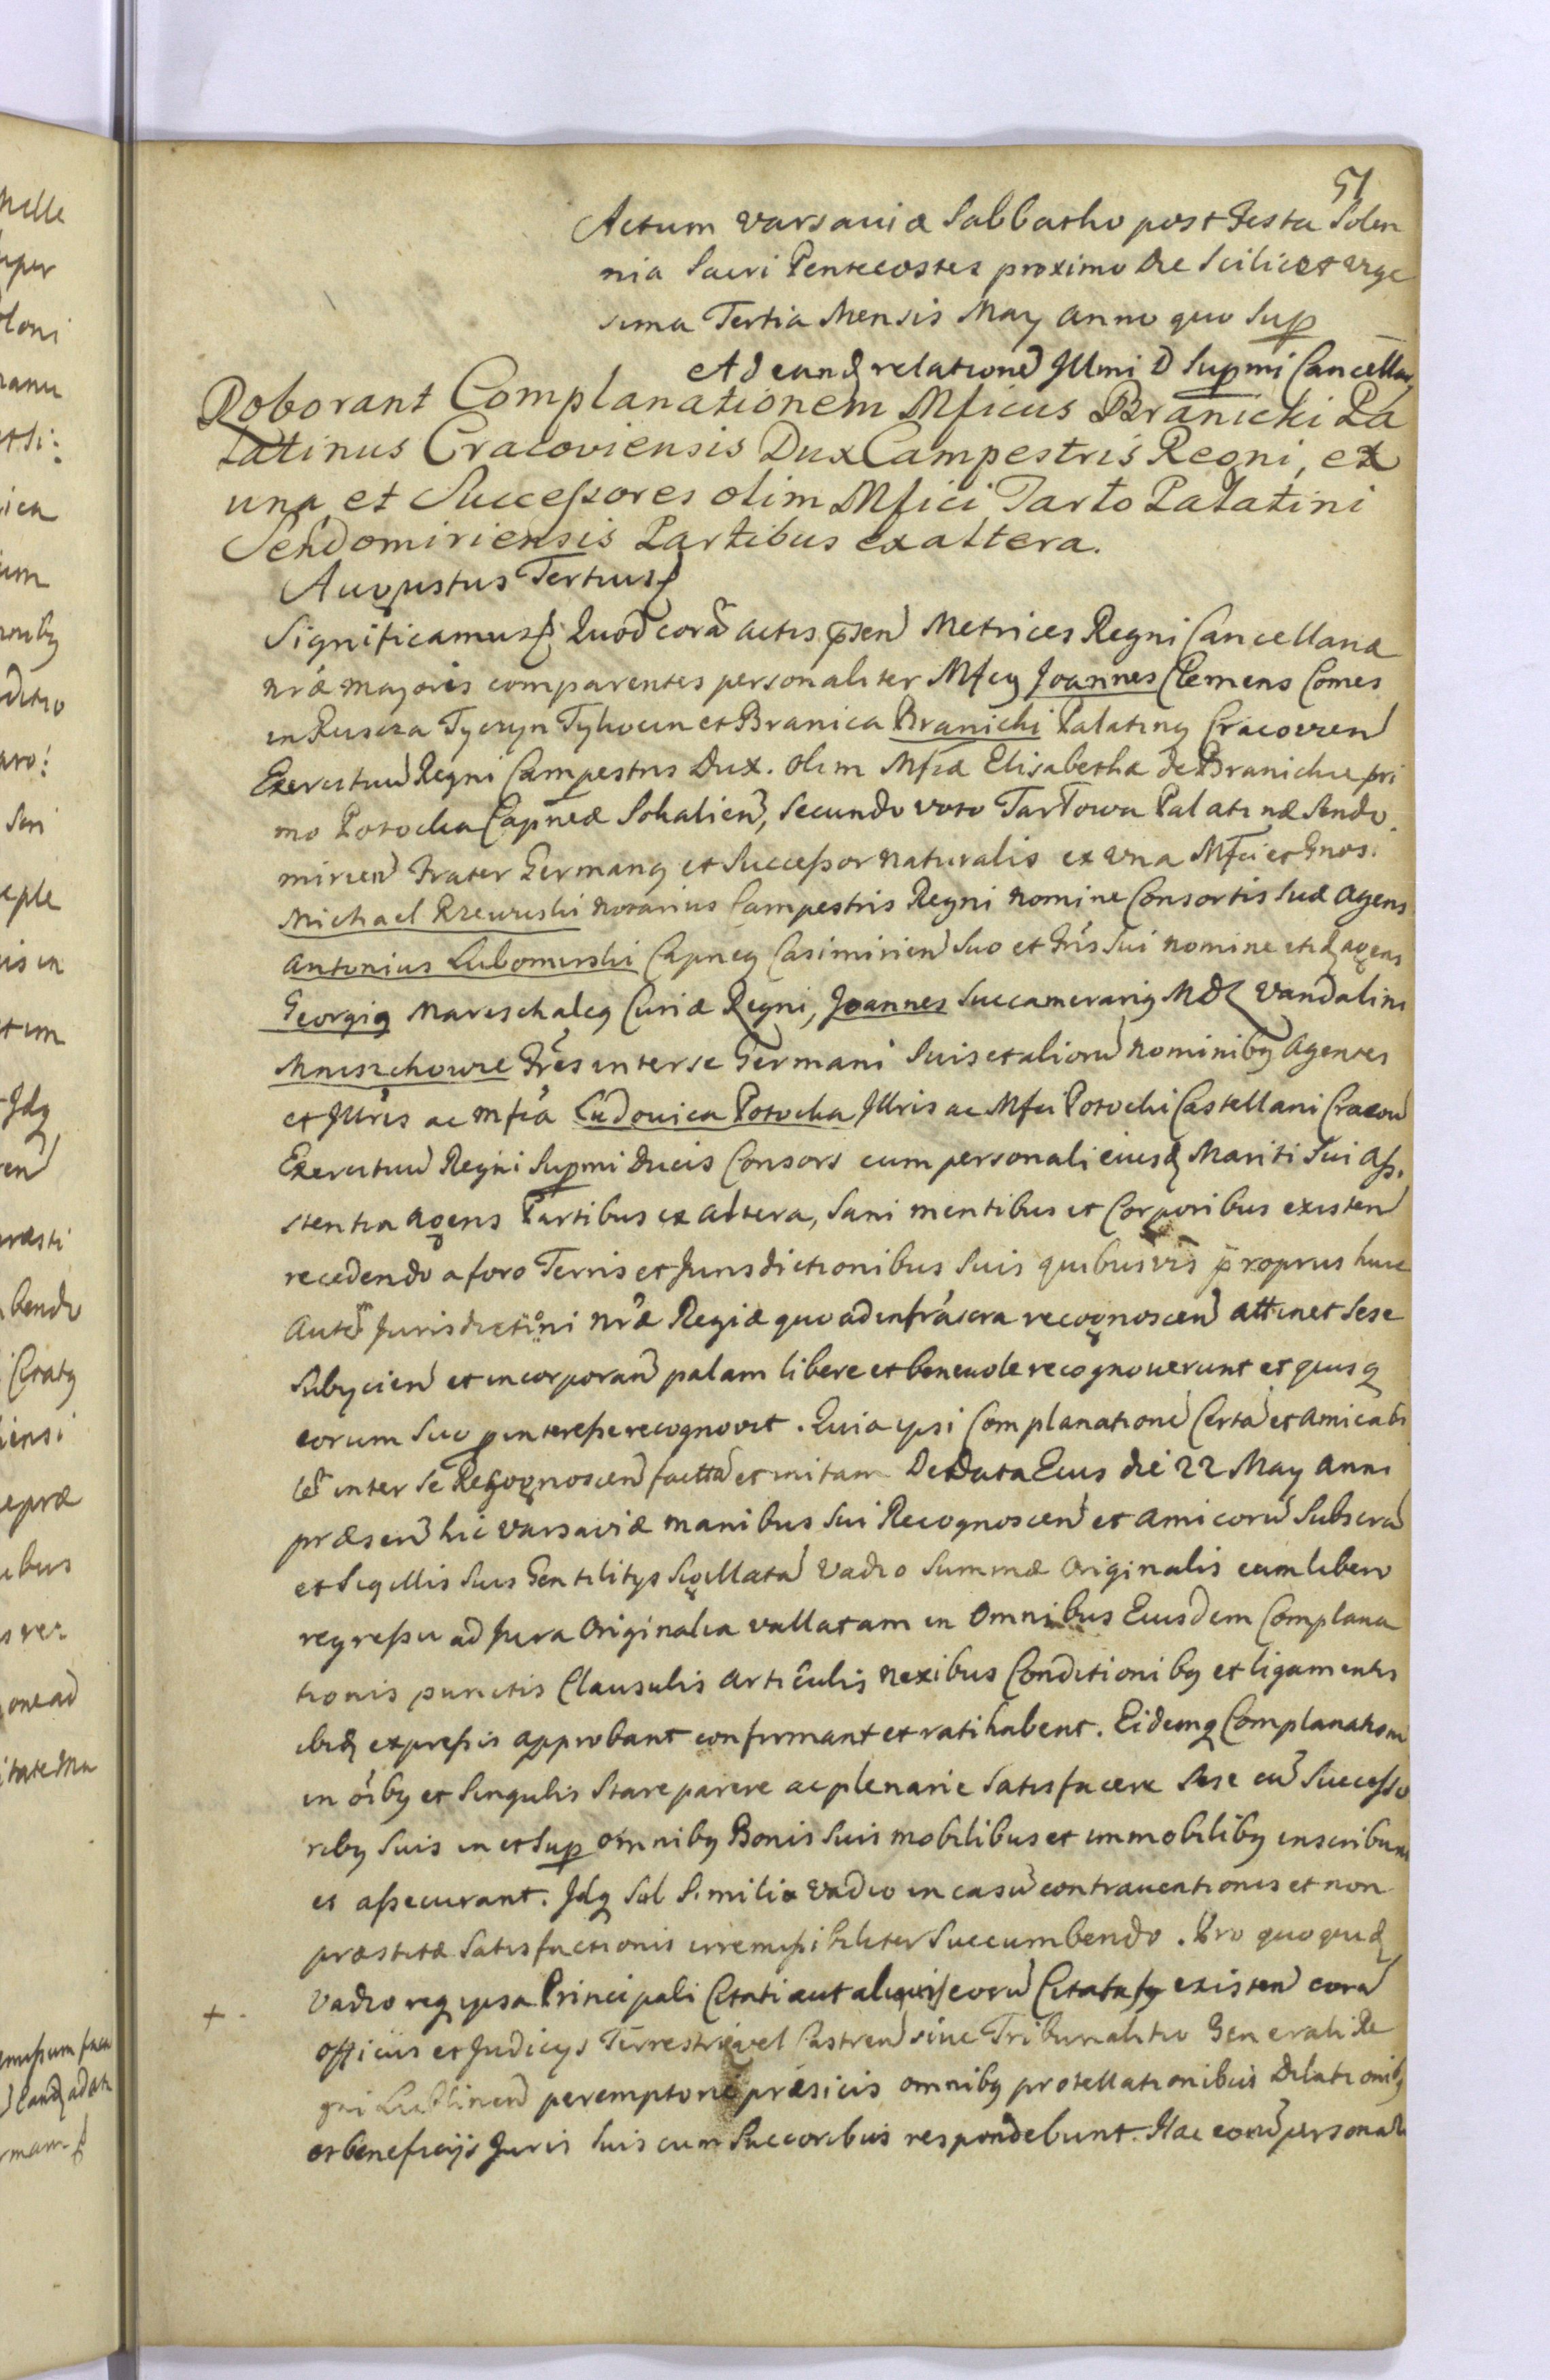 51
Actum Varsaviæ Sabbatho post Festa Solen
nia Sacri Pentecostes proximo die Scilicet vige
sima Tertia Mensis May anno quo Sup
Ad eandꝫ relationē Illmi D Supmi Cancellar,
Roborant Complanationem Mficus Branicki Pa
latinus Cracoviensis Dux Campestris Regni, ex
una, et Successores olim Mfici Tarło Palatini
Sendomiriensis Partibus ex altera.
Augustus Tertius
Significamus Quod corā actis p̄sen Metrices Regni Cancellariæ
nr̃æ majoris comparentes personaliter Mfcꝯ Joannes Clemens Comes
in Ruscza Tyczyn Tykocin et Branica Branicki Palatinꝯ Cracovien
Exercituū Regni Campestris Dux. olim Mfcæ Elisabethæ de Branickie pri
mo Potocka Capneæ Sokalien, Secundo voto Tarłowa Palatinæ Sendo
mirien Frater Germanꝯ et Successor naturalis ex una Mfci et Gnos.
Michael Rzewuski Notarius Campestris Regni nomine Consortis Suæ agens
Antonius Lubomirski Capneꝯ Casimirien Suo et Fr̃is Sui nomine etidꝫ agens
Georgiꝯ Mareschalcꝯ Curiæ Regni, Joannes Succamerariꝯ MDL Vandalini
Mniszchowie Fr̃es inter se Germani Suis et aliorū Nominibꝯ Agentes
et Jllr̃is ac Mfca Ludovica Potocka Jllris ac Mfci Potocki Castellani Cracov
Exercituū Regni Supmi Ducis Consors cum personali eiusdꝫ Mariti Sui Assi
stentia agens Partibus ex altera, Sani mentibus et Corporibus existen
recedendo a foro Terris et Jurisdictionibus Suis quibusvis propriis huic
Autē Jurisdictioni nr̃æ Regiæ quo ad infrascra recognoscen attinet Sese
Subijcien et incorporan palam libere et benevole recognoverunt et quisqꝫ
eorum Suo p interesse recognovit. Quia ipsi Complanationē Certā et Amicabi
lē inter Se Recognoscen factā et initam De Data Eius die 22 May Anni
præsen hic Varsaviæ manibus Sui Recognoscen et amicorū Subscra
et Sigillis Suis Gentilitys Sigillatā Vadio Summæ Originalis cum libero
regressu ad Jura Originalia vallatam in Omnibus Eiusdem Complana
tionis punctis Clausulis Articulis Nexibus Conditionibꝯ et ligamentis
ibidꝫ expressis approbant confirmant et ratihabent. Eidemqꝫ Complanationi
in oĩbꝯ et Singulis Stare parere ac plenarie Satisfacere Sese cū Successo
ribꝯ Suis in et Sup omnibꝯ Bonis Suis mobilibus et immobilibꝯ inscribunt
et assecurant. Jdqꝫ Sub Simili Vadio in casū contraventionis et non
præstitæ Satisfactionis irremissibiliter Succumbendo. Pro quo quidꝫ
+ Vadio reqꝫ ipsa Principali Citati aut aliquis eorū Citatꝯ existen corā
Officiis et Judicys Terrestri vel Castren sive Tribunalitio Generali Re
gni Lublinen peremptorie præsicis omnibꝯ protellationibus Dilationibꝯ
et beneficijs Juris Suis cum Succoribus respondebunt. Hac eorū personali